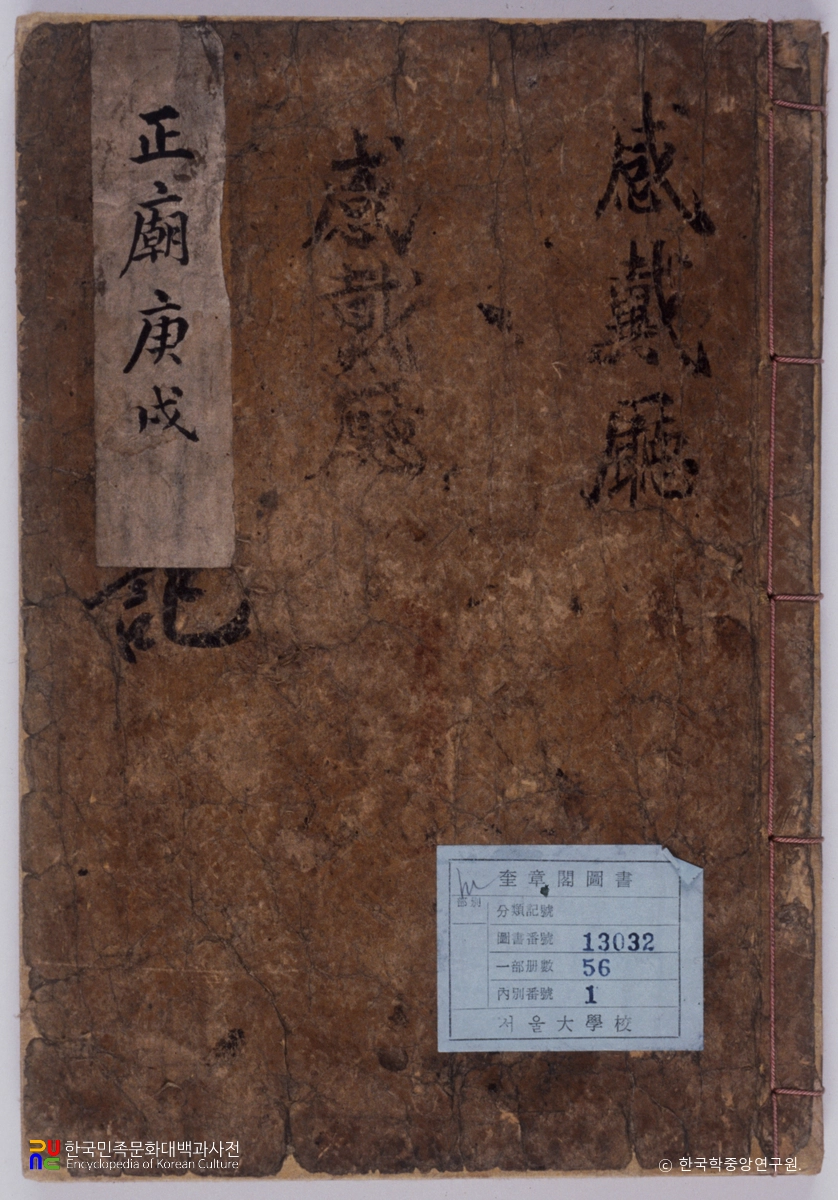 感戴廳
感戴廳
正廟庚戌
記
奎章閣圖書
分類記號
圖書番號 13032
一部册數 56
內別番號 1
서울大學校
한국민족문화대백과사전
Encyclopedia of Korean Culture
© 한국학중앙연구원